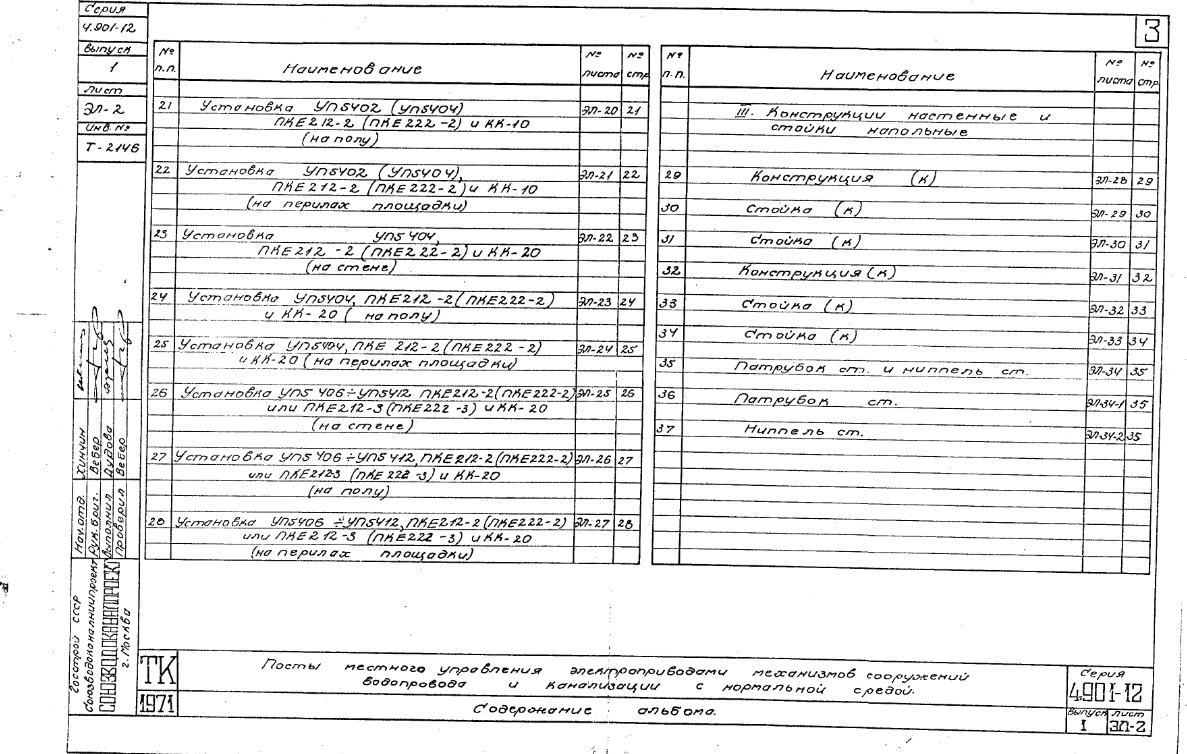 3
Серия
4.901-12
выпуск
1
лист
ЭЛ-2
Инв. №
Т-2146
№ п.п. Наименование № листа № стр
21 Установка УП5402 (УП5404) ЭЛ-20 21
ПКЕ212-2 (ПКЕ222-2) и КК-10
(на полу)
22 Установка УП5402 (УП5404), ЭЛ-21 22
ПКЕ212-2 (ПКЕ222-2) и КК-10
(на перилах площадки)
23 Установка УП5404, ЭЛ-22 23
ПКЕ212-2 (ПКЕ222-2) и КК-20
(на стене)
24 Установка УП5404, ПКЕ212-2 (ПКЕ222-2) ЭЛ-23 24
и КК-20 (на полу)
25 Установка УП5404, ПКЕ 212-2 (ПКЕ222-2) ЭЛ-24 25
и КК-20 (на перилах площадки)
26 Установка УП5406÷УП5412 ПКЕ212-2 (ПКЕ222-2) ЭЛ-25 26
или ПКЕ212-3 (ПКЕ222-3) и КК-20
(на стене)
27 Установка УП5406÷УП5412, ПКЕ212-2 (ПКЕ222-2) ЭЛ-26 27
или ПКЕ2123 (ПКЕ222-3) и КК-20
(на полу)
28 Установка УП5406÷УП5412, ПКЕ212-2 (ПКЕ222-2) ЭЛ-27 28
или ПКЕ212-3 (ПКЕ222-3) и КК-20
(на перилах площадки)
№ п.п. Наименование № листа № стр.
III. Конструкции настенные и
стойки напольные
29 Конструкция (к) ЭЛ-28 29
30 Стойка (к) ЭЛ-29 30
31 Стойка (к) ЭЛ-30 31
32 Конструкция (к) ЭЛ-31 32
33 Стойка (к) ЭЛ-32 33
34 Стойка (к) ЭЛ-33 34
35 Патрубок ст. и ниппель ст. ЭЛ-34 35
36 Патрубок ст. ЭЛ-34-1 35
37 Ниппель ст. ЭЛ-34-2 35
Нач. отд. Хинчин
Рук. бриг. Вебер
Выполнил Дудова
Проверил Вебер
Госстрой СССР
Союзводоканалниипроект
СОЮЗВОДОКАНАЛПРОЕКТ
г. Москва
ТК
1971
Посты местного управления электроприводами механизмов сооружений
водопровода и канализации с нормальной средой.
Содержание альбома.
Серия
4.901-12
Выпуск лист
1 ЭЛ-2